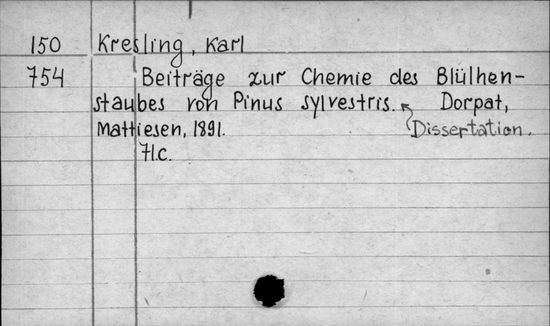 150 Kresling, Karl
754 Beiträge zur Chemie des Blülhen-
staubes von Pinus sylvestris. Dorpat,
Mattiesen, 1891. Dissertation.
71.c.